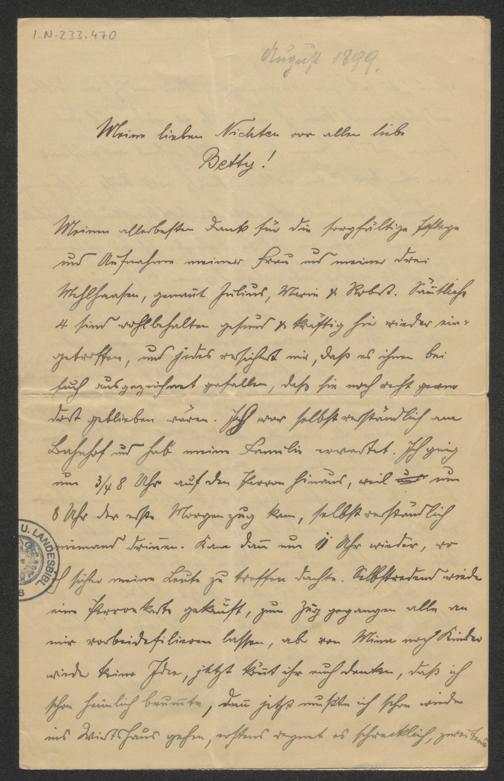 I.N. 233.470
August 1899.
Meine lieben Nichten vor allen liebe
Betty!
Meinen allerbesten Dank für die sorgfältige Pflege
und Aufnahme meiner Frau und meiner drei
genannt Julius, Marie & Robert. Sämtliche
4 sind wohlbehalten gesund & kräftig hie wieder ein-
getroffen, und jedes versichert mir, daß es ihnen bei
Euch ausgezeichnet gefallen, daß sie noch recht gerne
dort geblieben wären. Ich war selbstverständlich am
Bahnhof und hab meine Familie erwartet. Ich ging
um 3/4 8 Uhr auf den Perron hinaus, weil um
8 Uhr der erste Morgenzug kam, selbstverständlich
niemand drinnen. Kam dann um 11 Uhr wieder, wo
ich sicher meine Leute zu treffen dachte. Selbstredend wieder
eine Perronkarte gekauft, zum Zug gegangen alle an
mir vorbeidefilieren lassen, ab von Mina noch Kinder
wieder keine Idee, jetzt könnt ihr euch denken, daß ich
schon heimlich brummte, denn jetzt mußte ich schon wieder
ins Wirtshaus gehen, erstens regnet es schrecklich, zweitens
U. LANDESBIBL